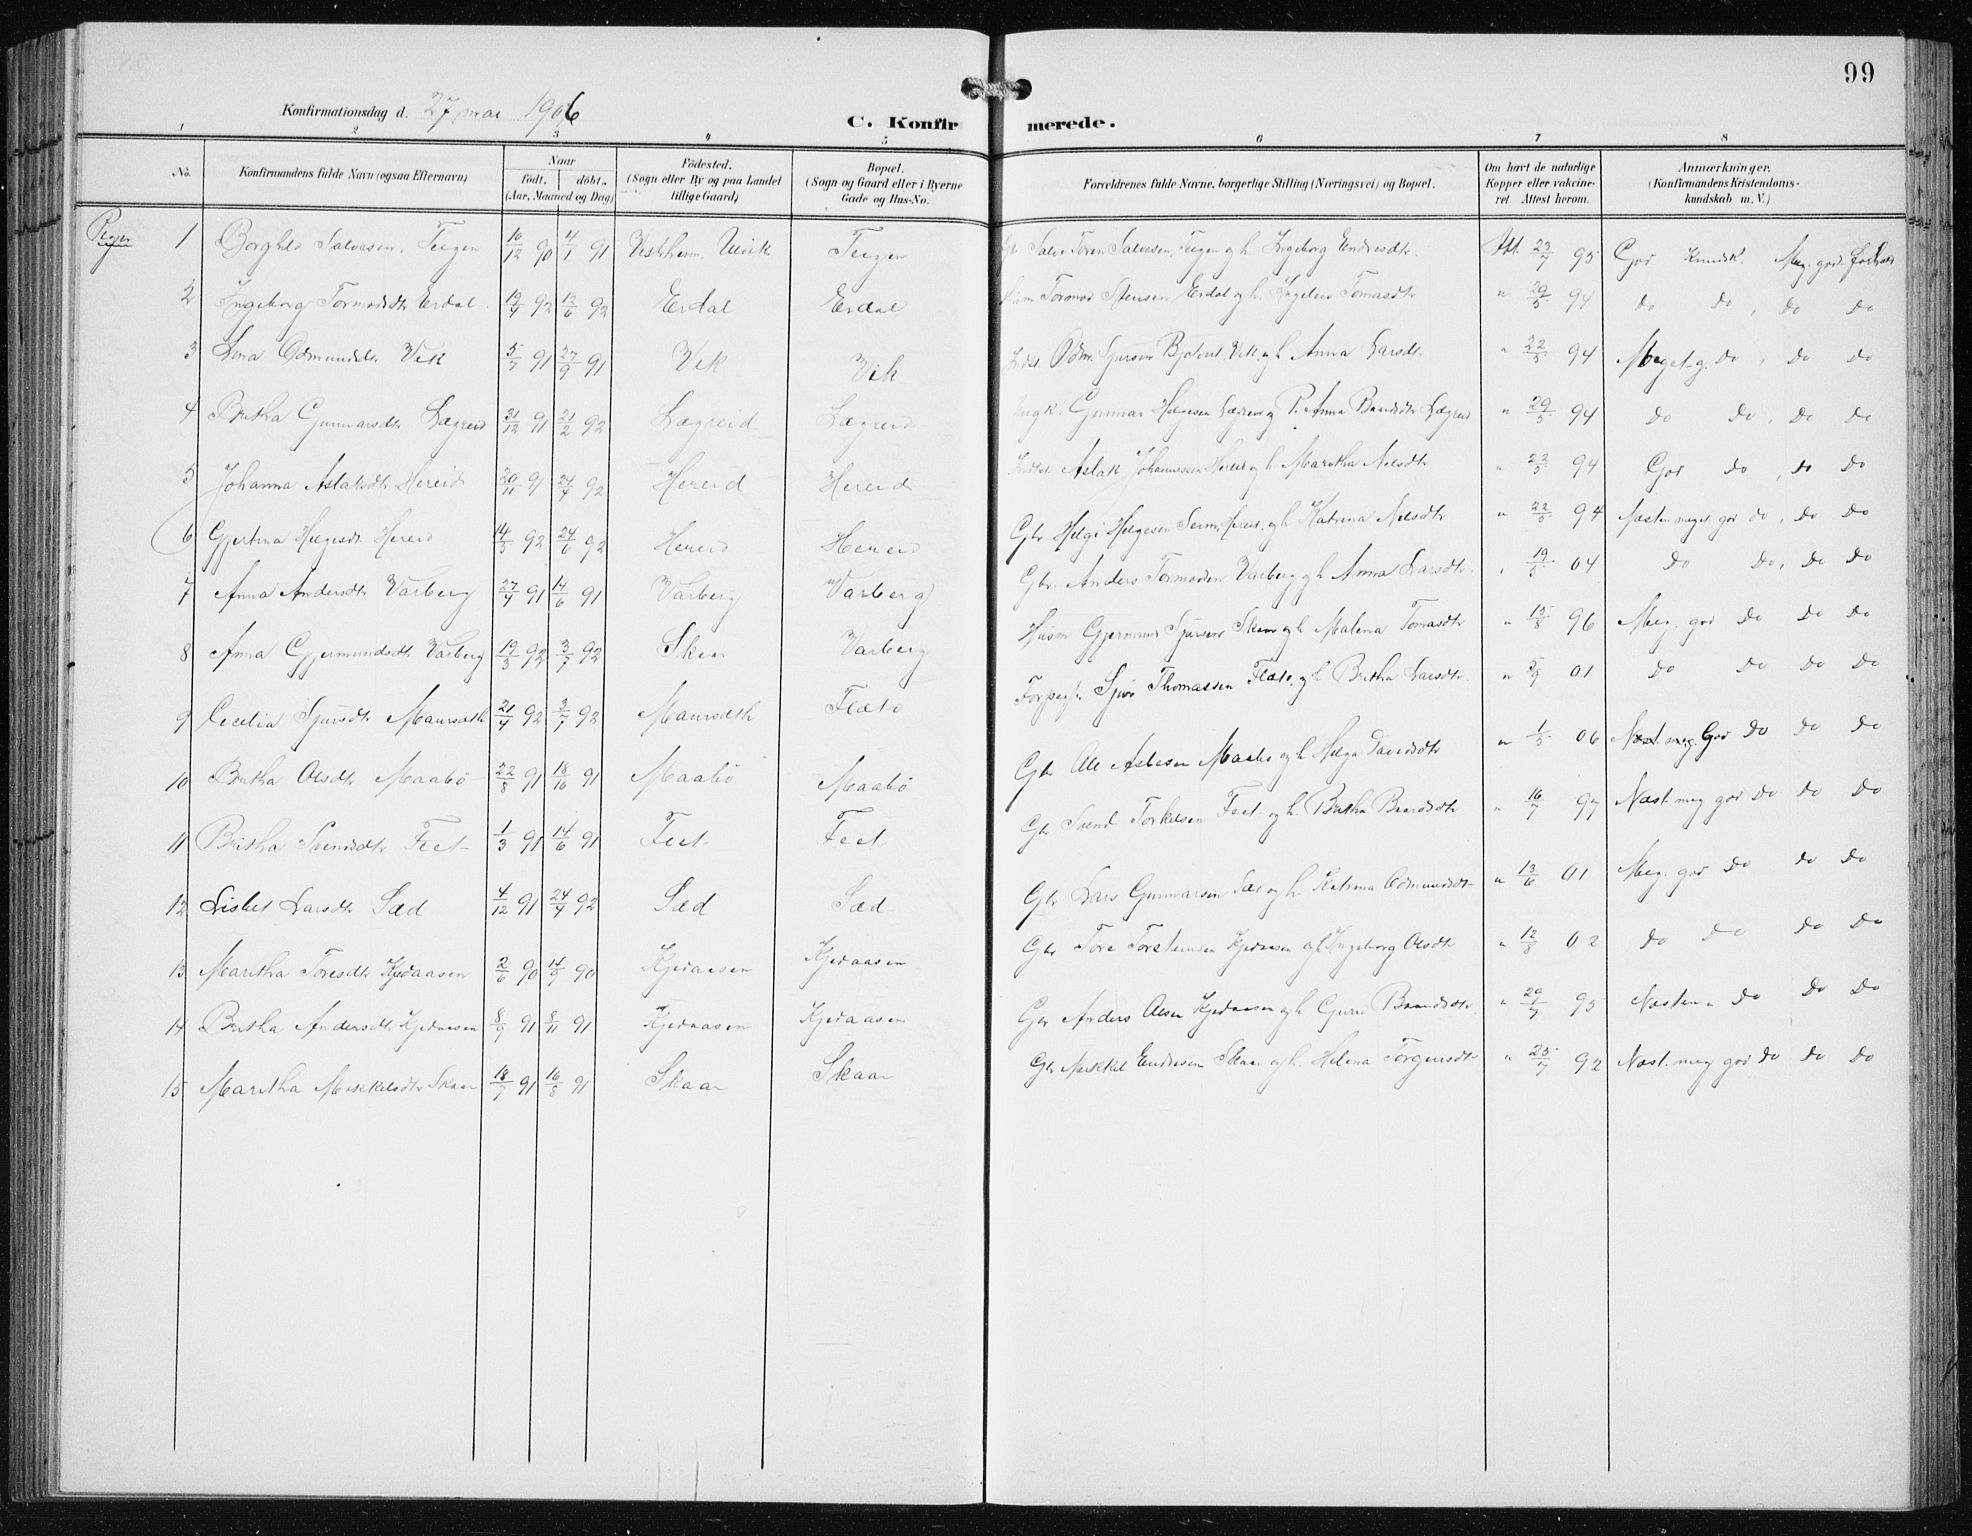 99
Konfirmationsdag d. 27 mai 1906
C. Konfirmerede.
1 2 3 4 5 6 7 8
No.
Konfirmandens fulde Navn (ogsaa Efternavn)
Naar
födt. döbt.
(Aar, Maaned og Dag)
Födested.
(Sogn eller By og paa Landet
tillige Gaard)
Bopæl.
(Sogn og Gaard eller i Byerne
Gade og Hus-No.
Forældrenes fulde Navne, borgerlige Stilling (Næringsvei) og Bopæl.
Om havt de naturlige
Kopper eller vakcine-
ret. Attest herom.
Anmærkninger.
(Konfirmandens Kristendoms-
kundskab m. V.)
Piger
1 Borghild Salvesen, Teigen 10/12 90 4/1 91 Vestrheim, Ulvik Teigen Salve Toren Salvesen, Teigen og h. Ingeborg Endresdtr. Att. 23/7 95 God Kundsk. Meg. god forhold
2 Ingeborg Tormodsdtr Erdal 19/4 92 12/6 92 Erdal Erdal Husm Tormod Stensen Erdal og h. Ingeleiv Tomasdtr " 29/5 94 do do, do do
3 Lena Odmundsdtr Vik 5/7 91 27/9 91 Vik Vik Indst. Odm. Sjursen Vik og h Anna Larsdtr. " 22/5 94 Meget g. do, do do
4 Britha Gunnarsdtr Lægreid 31/12 91 21/2 92 Lægreid Lægreid Ungk. Gunnar Helgesen Lægreid og P. Anna Baardsdtr Lægreid " 29/5 94 do do, do do
5 Johanna Aslaksdtr Hereid 20/11 91 24/4 92 Hereid Hereid Indst. Aslak Johannessen Hereid og h. Maritha Nelsdtr " 22/5 94 God do, do do
6 Gjertina Helgesdtr Hereid 14/5 92 24/6 92 Hereid Hereid Gbr Helge Helgesen Hereid og h Katrina Nelsdtr " 22/5 94 Næsten meget god do, do do
7 Anna Andersdtr Varberg 27/4 91 14/6 91 Varberg Varberg Gbr. Anders Tormodsen Varberg og h Anna Larsdtr. " 19/5 04 do do, do do
8 Anna Gjermundsdtr Varberg 19/3 92 3/7 92 Varberg Husm Gjermund Sjursen og h Malena Tomasdtr " 15/8 96 Meg. god do do do
9 Cecelia Sjursdtr Maursæth 21/4 92 3/7 92 Maursæth Flæto Sjur Thomassen Flæto og h Britha Larsdtr. " 5/9 01 do do do do
10 Britha Olsdtr Maabö 22/8 91 18/10 91 Maabö Maabö Gbr Ole Maabö og h Helga Davidsdtr " 1/5 06 Næst. meg. God do do do
11 Britha Svendsdtr Feet 1/3 91 14/6 91 Feet Feet Gbr Svend Torkelsen Feet og h. Britha Baardsdtr " 16/7 97 Næst. meg god do do do
12 Lisbet Larsdtr Sæd 4/12 91 24/4 92 Sæd Sæd Gbr Lars Gunnarsen Sæd og h. Katrina Odmundsdtr " 13/6 01 Meg. god do do do
13 Maritha Toresdtr Kjeaasen 2/6 90 14/9 90 Kjeaasen Kjeaasen Gbr Tore Torsteinsen Kjeaasen og h Ingeborg Olsdtr " 12/8 02 do do do do
14 Britha Andersdtr Kjeaasen 8/9 91 8/11 91 Kjeaasen Kjeaasen Gbr Anders Olsen Kjeaasen og h Gurid Baardsdtr. " 29/7 95 Næsten " do do do
15 Maritha Mikkelsdtr Skaar 18/7 91 16/8 91 Skaar Skaar Gbr Mikkel Endresen Skaar og h. Helena Torgersdtr " 25/7 92 Næst. meg god do do do